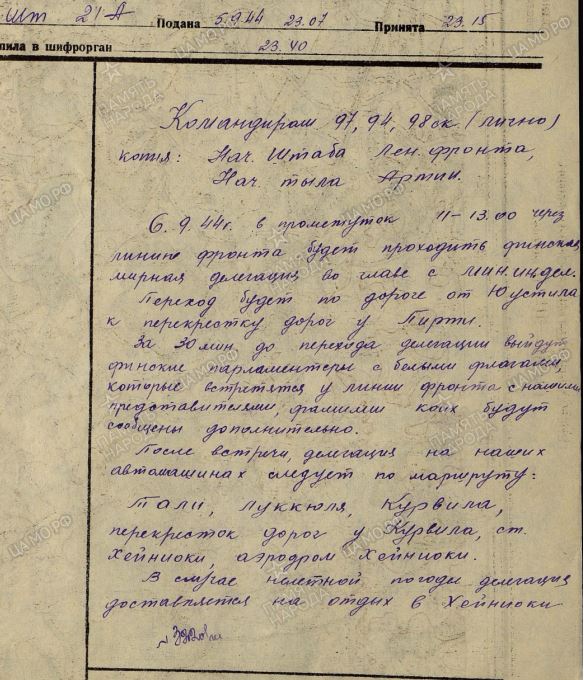 Шт 21-А Подана 5.9.44 23.07 Принята 23.15
пила в шифрорган 23.40
Командирам 97, 94, 98 ск. (лично)
копия: Нач. Штаба Лен. фронта,
Нач. тыла Армии.
6.9.44г. в промежуток 11-13.00 через
линию фронта будет проходить финская
мирная делегация во главе с мин.индел.
Переход будет по дороге от Юустила
к перекрестку дорог у Пирти.
За 30 мин. до перехода делегации выйдут
финские парламентеры с белыми флагами,
которые встретятся у линии фронта с нашими
представителями, фамилии коих будут
сообщены дополнительно.
После встречи, делегация на наших
автомашинах следует по маршруту:
Тали, Луккюля, Курвила,
перекресток дорог у Курвила, ст.
Хейниоки, аэродром Хейниоки.
В случае нелетной погоды делегация
доставляется на отдых в Хейниоки
ПАМЯТЬ НАРОДА
ЦАМО.РФ